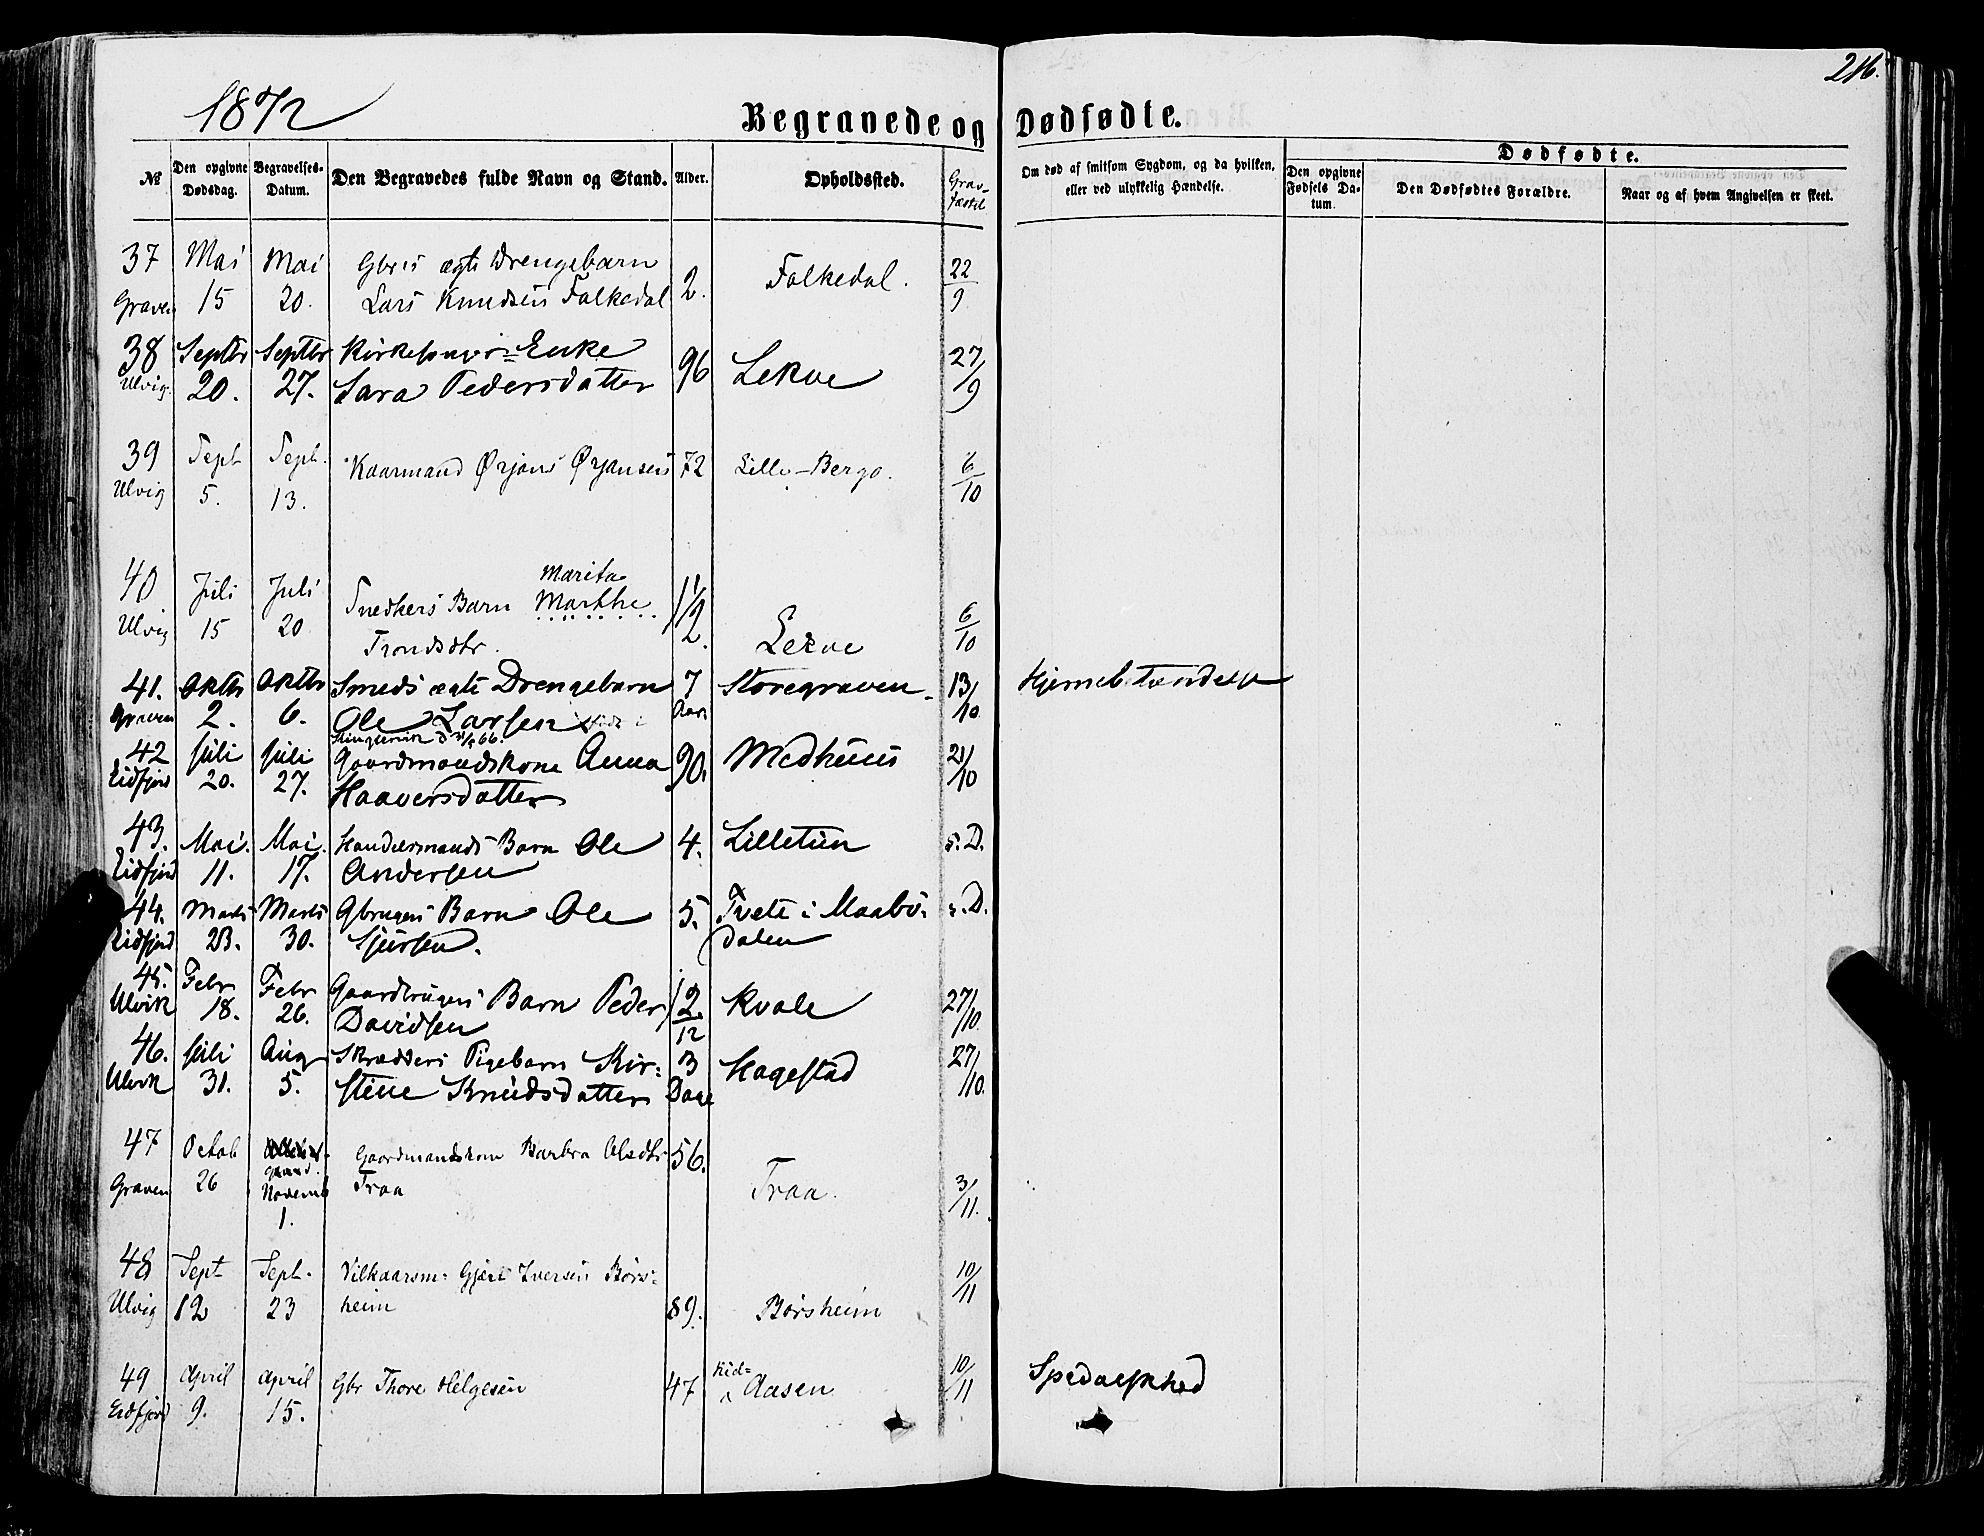 216.
1872
Begravede og Dødfødte.
№
Den opgivne Dødsdag.
Begravelses-Datum.
Den Begravedes fulde Navn og Stand.
Alder.
Opholdssted.
Grav-fæstel
Om død af smitsom Sygdom, og da hvilken, eller ved ulykkelig Hændelse.
Dødfødte.
Den opgivne Fødsels Datum.
Den Dødfødtes Forældre.
Naar og af hvem Angivelsen er skeet.
37 Mai Mai Gbr's ægte Drengebarn
Graven 15 20. Lars Knudsen Falkedal 2. Falkedal. 22/9
38 Septbr Septbr Enke
Ulvig. 20. 27. Sara Pedersdatter 96 Lekve 27/9
39 Sept Sept. Kaarmand Ørjans Ørjansen 72 Lille-Bergo. 6/10
Ulvig 5. 13.
40 Juli Juli Marita
Snedkers Barn Marthe 1 1/2
Ulvig 15 20 Trondsdtr. Lekve 6/10
41. Oktbr Oktbr Smeds ægte Drengebarn 7 Storegraven 13/10 Hjernebetændelse
Graven 2. 6. Ole Larsen født i Aar
66.
42 Juli Juli Gaardmandskone Anna 90. Medhuus 21/10
Eidfjord 20. 27. Haaversdatter
43. Mai. Mai. Handelsmands Barn Ole 4. Lilletun s. D.
Eidfjord 11. 17. Andersen
44. Marts Marts Gbrugers Barn Ole 5. Tveite i Maabø- s. D.
Eidfjord 23. 30. Sjursen. dalen
45. Febr Febr Gaardbrugers Barn Peder 2/12 Kvale 27/10.
Ulvik 18. 26. Davidsen
46. Juli Aug Skrædders Pigebarn Kir= 3 Hagestad 27/10.
Ulvik 31. 5. stene Knudsdatter Dage
47 Octob Gaardmandskone Barbra Olsdtr 56.
Graven 26 Novemb Traa Traa. 3/11.
1.
48 Sept Sept. Vilkaarsm: Gjert Iversen Børs= 10/11
Ulvig 12 23 heim 89. Børsheim
49 April April Gbr Thore Helgesen 47 Kid= Aasen 10/11 Spedalskhed
Eidfjord 9. 15.